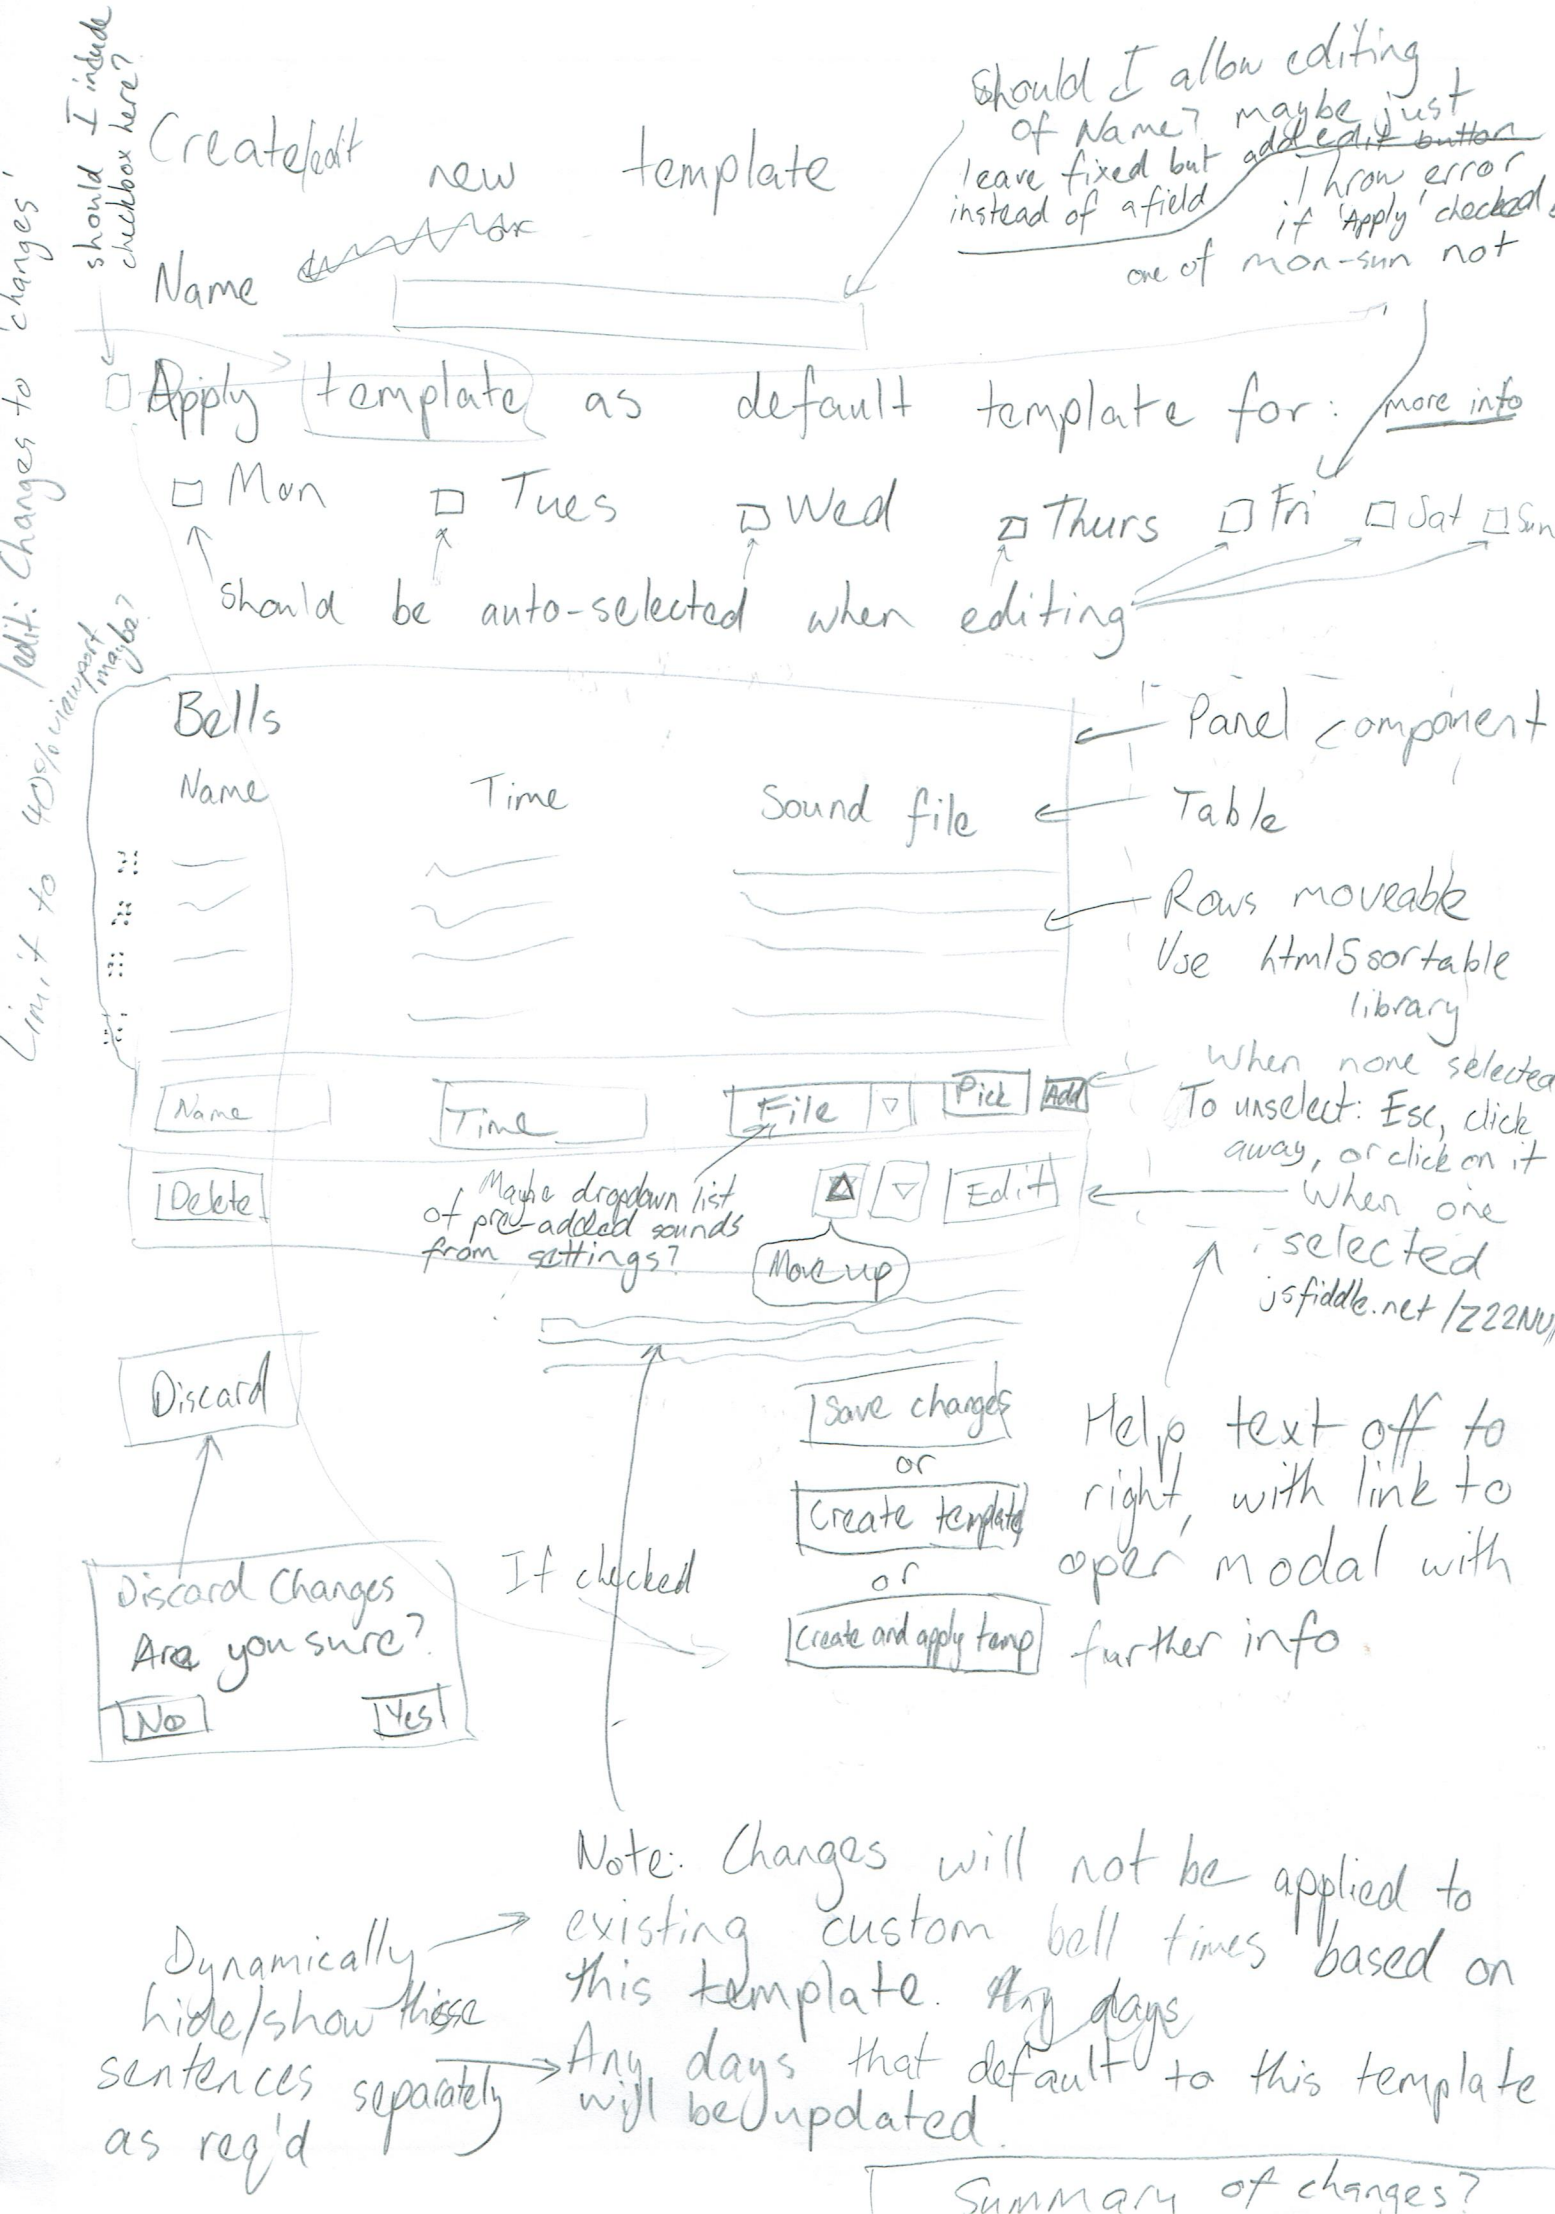 should I include
checkbox here?
Create/edit new template
should I allow editing
of Name? maybe just
leave fixed but add edit button
instead of a field
Throw error
if 'Apply' checked,
one of mon-sun not
Name
Apply template as default template for: more info
Mon Tues Wed Thurs Fri Sat Sun
should be auto-selected when editing
/edit: Changes to 'changes'
Limit to 40% viewport
maybe?
Bells
Name Time Sound file
Panel component
Table
Rows moveable
Use html5sortable
library
Name Time File Pick Add
When none selected
To unselect: Esc, click
away, or click on it
Delete Edit
Move up
Maybe dropdown list
of pre-added sounds
from settings?
When one
selected
Discard
Save changes
or
Create template
or
Create and apply temp
If checked
Help text off to
right, with link to
open modal with
further info
Discard Changes
Are you sure?
No Yes
Note: Changes will not be applied to
existing custom bell times based on
this template. Any days
Any days that default to this template
will be updated.
Dynamically
hide/show these
sentences separately
as req'd
Summary of changes?